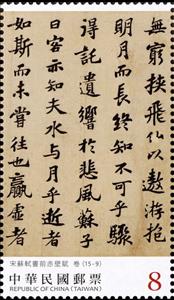 無窮挾飛仙以遨游抱
明月而長終知不可乎驟
得託遺響於悲風蘇子
曰客亦知夫水與月乎逝者
如斯而未嘗往也贏虛者
宋蘇軾書前赤壁賦 卷 (15-9)
中華民國郵票
REPUBLIC OF CHINA (TAIWAN)
8